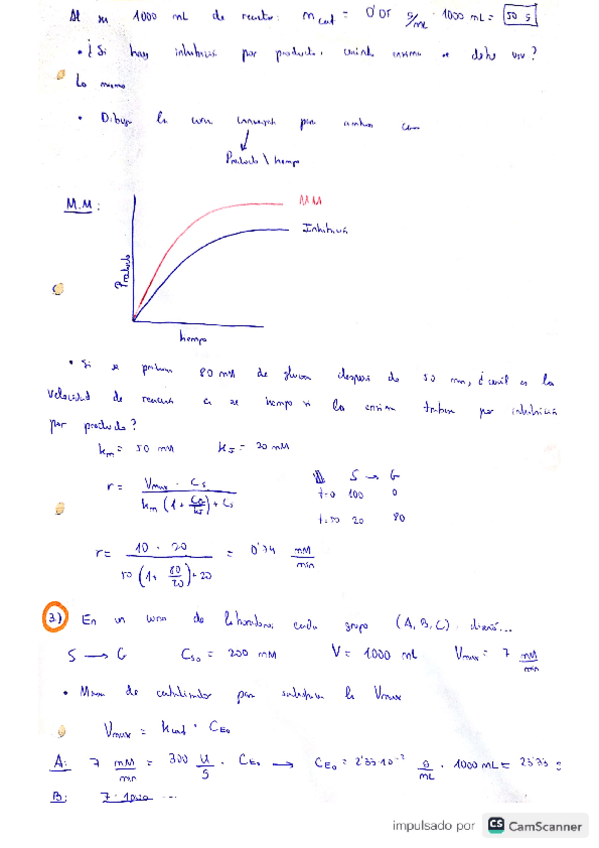 At in 1000 mL de reactor: m cat = 0'05 g/mL · 1000 mL = 50 g
• ¿Si hay inhibición por producto, cuánta enzima se debe usar?
Lo mismo
• Dibuja la curva para ambos casos
Producto \ tiempo
M.M:
MM
Inhibición
Producto
tiempo
• Si se producen 80 mM de glucosa después de 50 min, ¿cuál es la
velocidad de reacción a ese tiempo si la enzima por inhibición
por producto?
km = 50 mM kS = 20 mM
r = Vmax · Cs / km (1 + /) + Cs
S → G
t=0 100 0
t=50 20 80
r = 10 · 20 / 50 (1 + 80/20) + 20 = 0'74 mM/min
3.) En un curso de laboratorio, cada grupo (A, B, C) diseñó...
S → G Cso = 200 mM V = 1000 mL Vmax = 7 mM/min
• Masa de catalizador para satisfacer la Vmax
Vmax = kcat · CEo
A: 7 mM/min = 300 U/g · CEo → CEo = 2'33·10⁻² g/mL · 1000 mL = 23'33 g
B: 7 · 1000 ...
impulsado por CS CamScanner